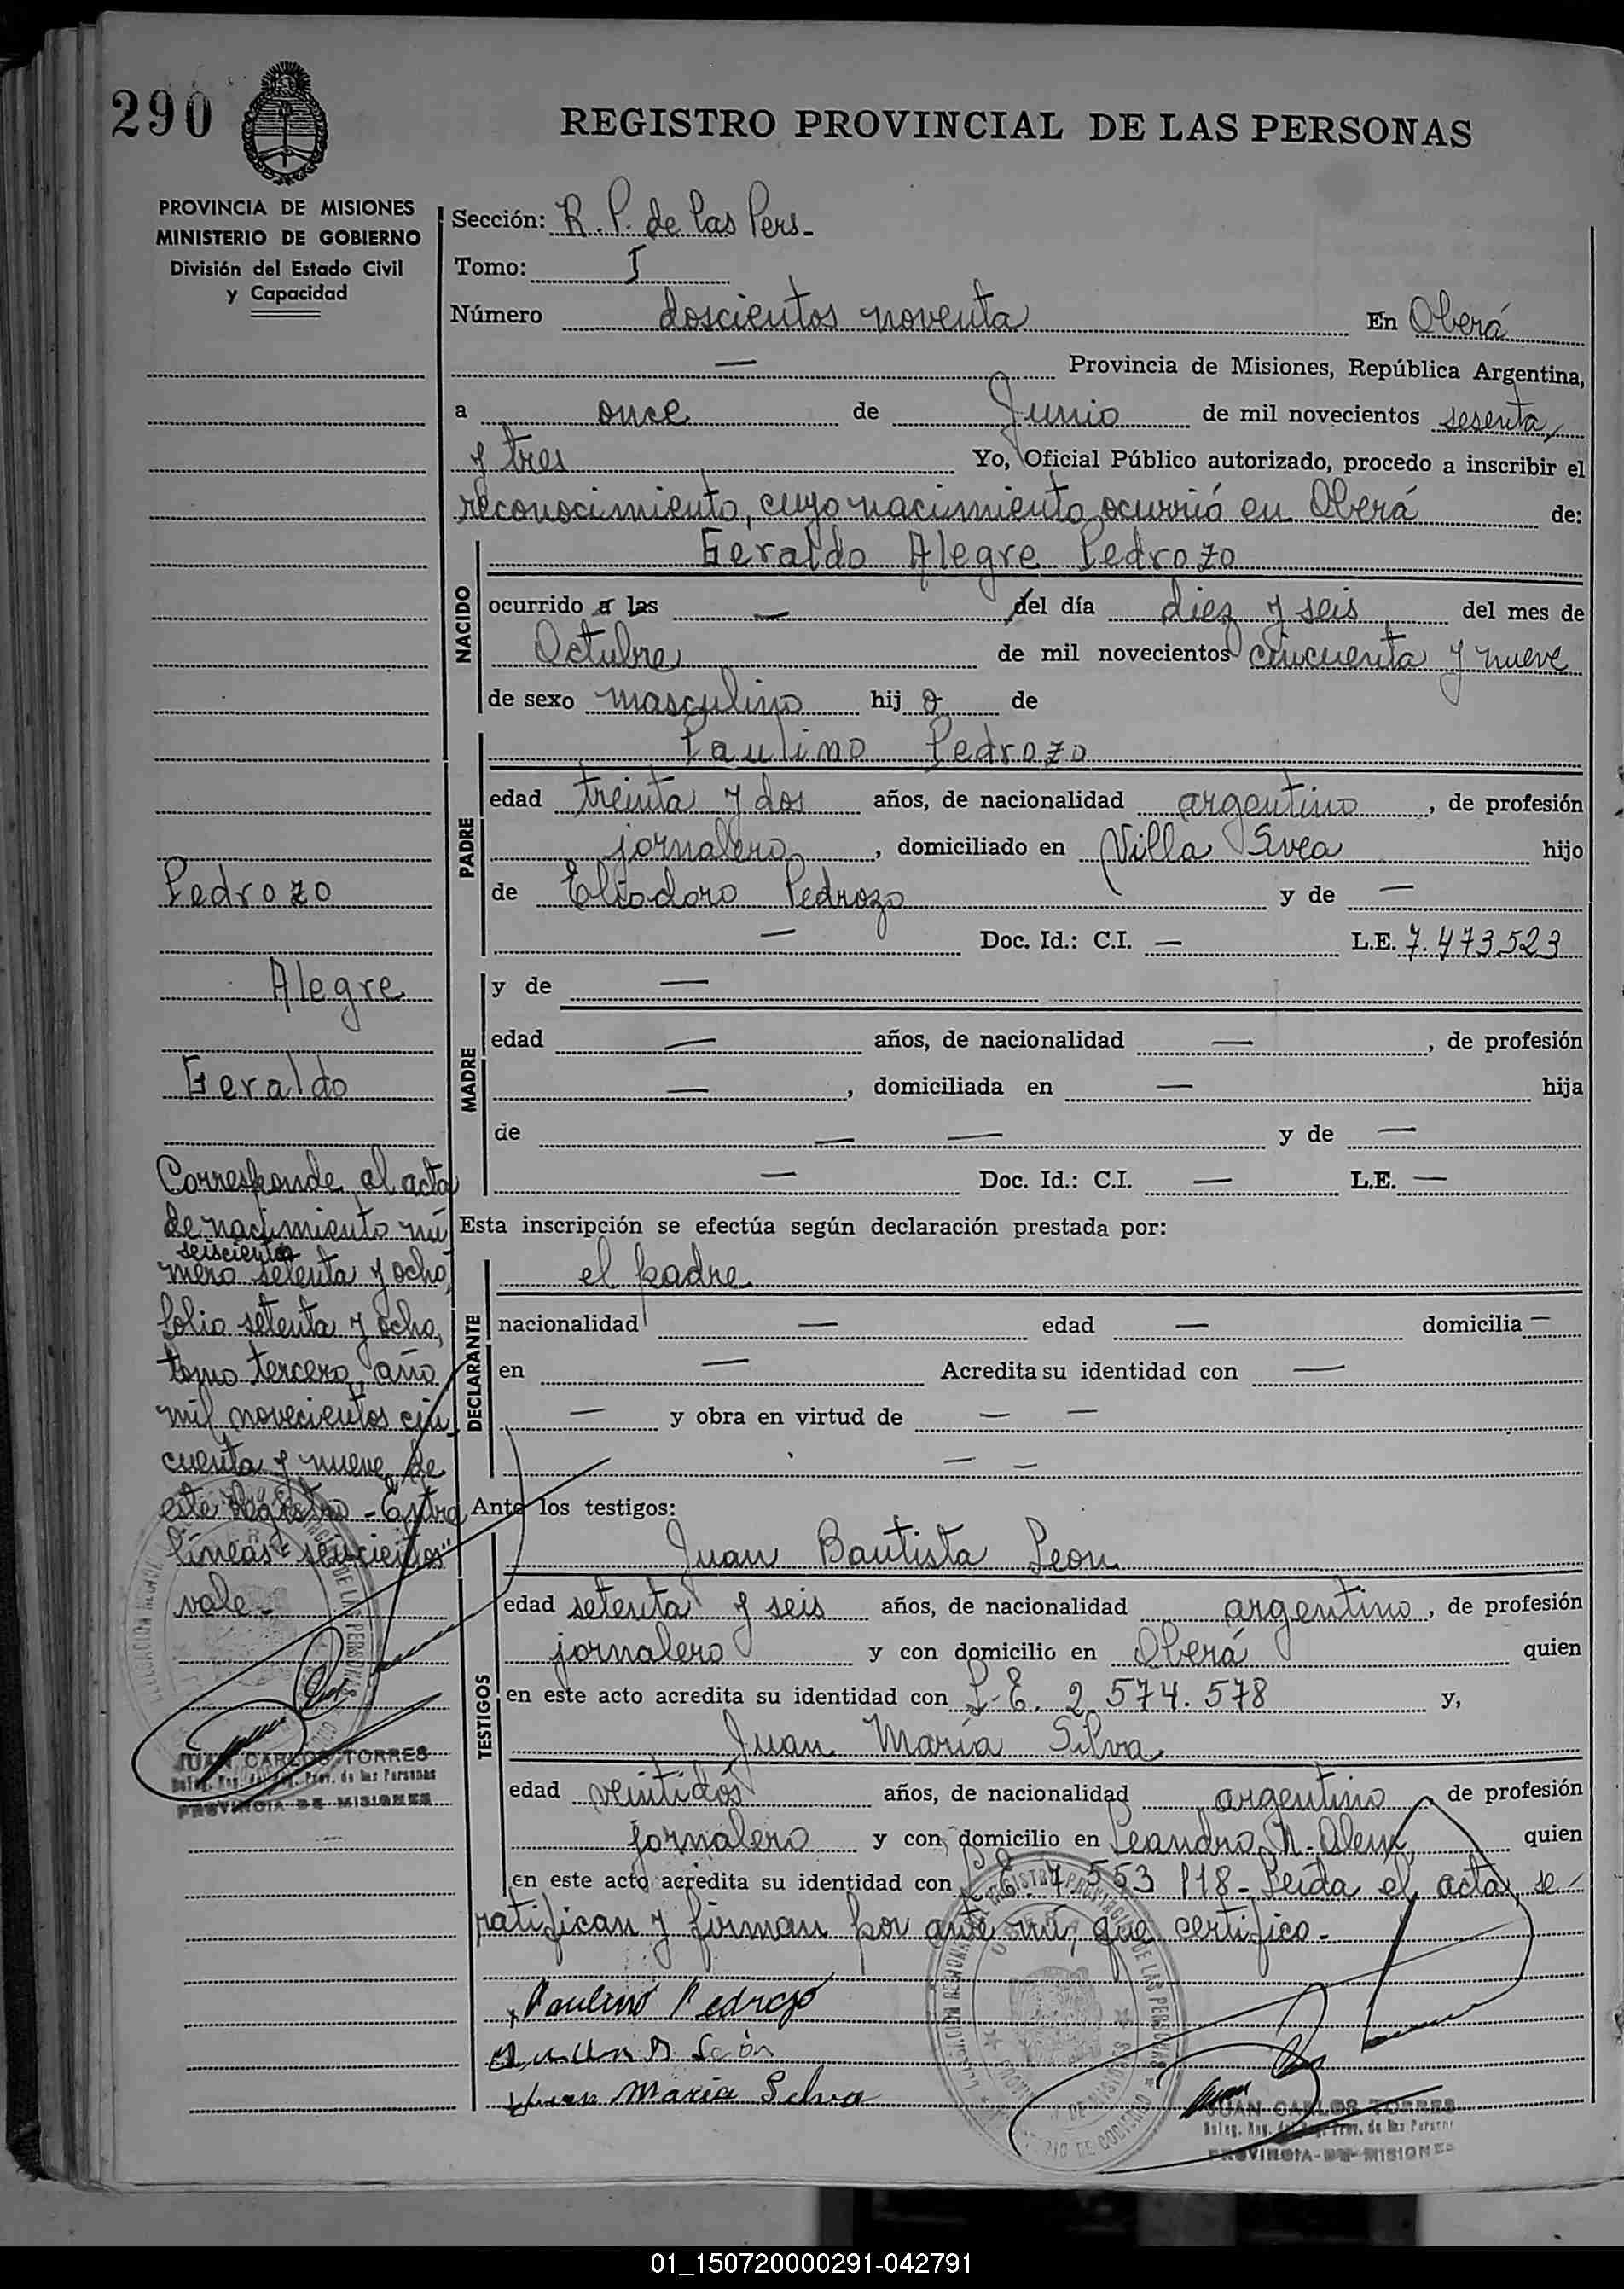 290
REGISTRO PROVINCIAL DE LAS PERSONAS
PROVINCIA DE MISIONES
MINISTERIO DE GOBIERNO
División del Estado Civil
y Capacidad
Sección: R. P. de las Pers.
Tomo: I
Número doscientos noventa En Oberá
— Provincia de Misiones, República Argentina,
a once de Junio de mil novecientos sesenta
y tres Yo, Oficial Público autorizado, procedo a inscribir el
reconocimiento, cuyo nacimiento ocurrió en Oberá de:
NACIDO
Geraldo Alegre Pedrozo
ocurrido a las — del día diez y seis del mes de
Octubre de mil novecientos cincuenta y nueve
de sexo masculino hij o de
PADRE
Paulino Pedrozo
edad treinta y dos años, de nacionalidad argentino, de profesión
jornalero, domiciliado en Villa Svea hijo
de Eliodoro Pedrozo y de —
— Doc. Id.: C.I. — L.E. 7.473.523
MADRE
y de —
edad — años, de nacionalidad —, de profesión
—, domiciliada en — hija
de — — y de —
— Doc. Id.: C.I. — L.E. —
Esta inscripción se efectúa según declaración prestada por:
DECLARANTE
el padre
nacionalidad — edad — domicilia —
en — Acredita su identidad con —
— y obra en virtud de — —
— —
Ante los testigos:
TESTIGOS
Juan Bautista Leon
edad setenta y seis años, de nacionalidad argentino, de profesión
jornalero y con domicilio en Oberá quien
en este acto acredita su identidad con L.E. 2.574.578 y,
Juan María Silva
edad veintidós años, de nacionalidad argentino de profesión
jornalero y con domicilio en Leandro N. Alem quien
en este acto acredita su identidad con L.E. 7.553.118 - Leída el acta, se
ratifican y firman por ante mí, que certifico.-
Paulino Pedrozo
Juan Maria Silva
JUAN CARLOS TORRES
Deleg. Reg. del Reg. Prov. de las Personas
PROVINCIA DE MISIONES
Pedrozo
Alegre
Geraldo
Corresponde al acta
de nacimiento nú
seiscientos
mero setenta y ocho,
folio setenta y ocho,
tomo tercero, año
mil novecientos cin
cuenta y nueve, de
este Registro - Entre
líneas: "seiscientos"
vale -
JUAN CARLOS TORRES
Deleg. Reg. del Reg. Prov. de las Personas
PROVINCIA DE MISIONES
01_150720000291-042791